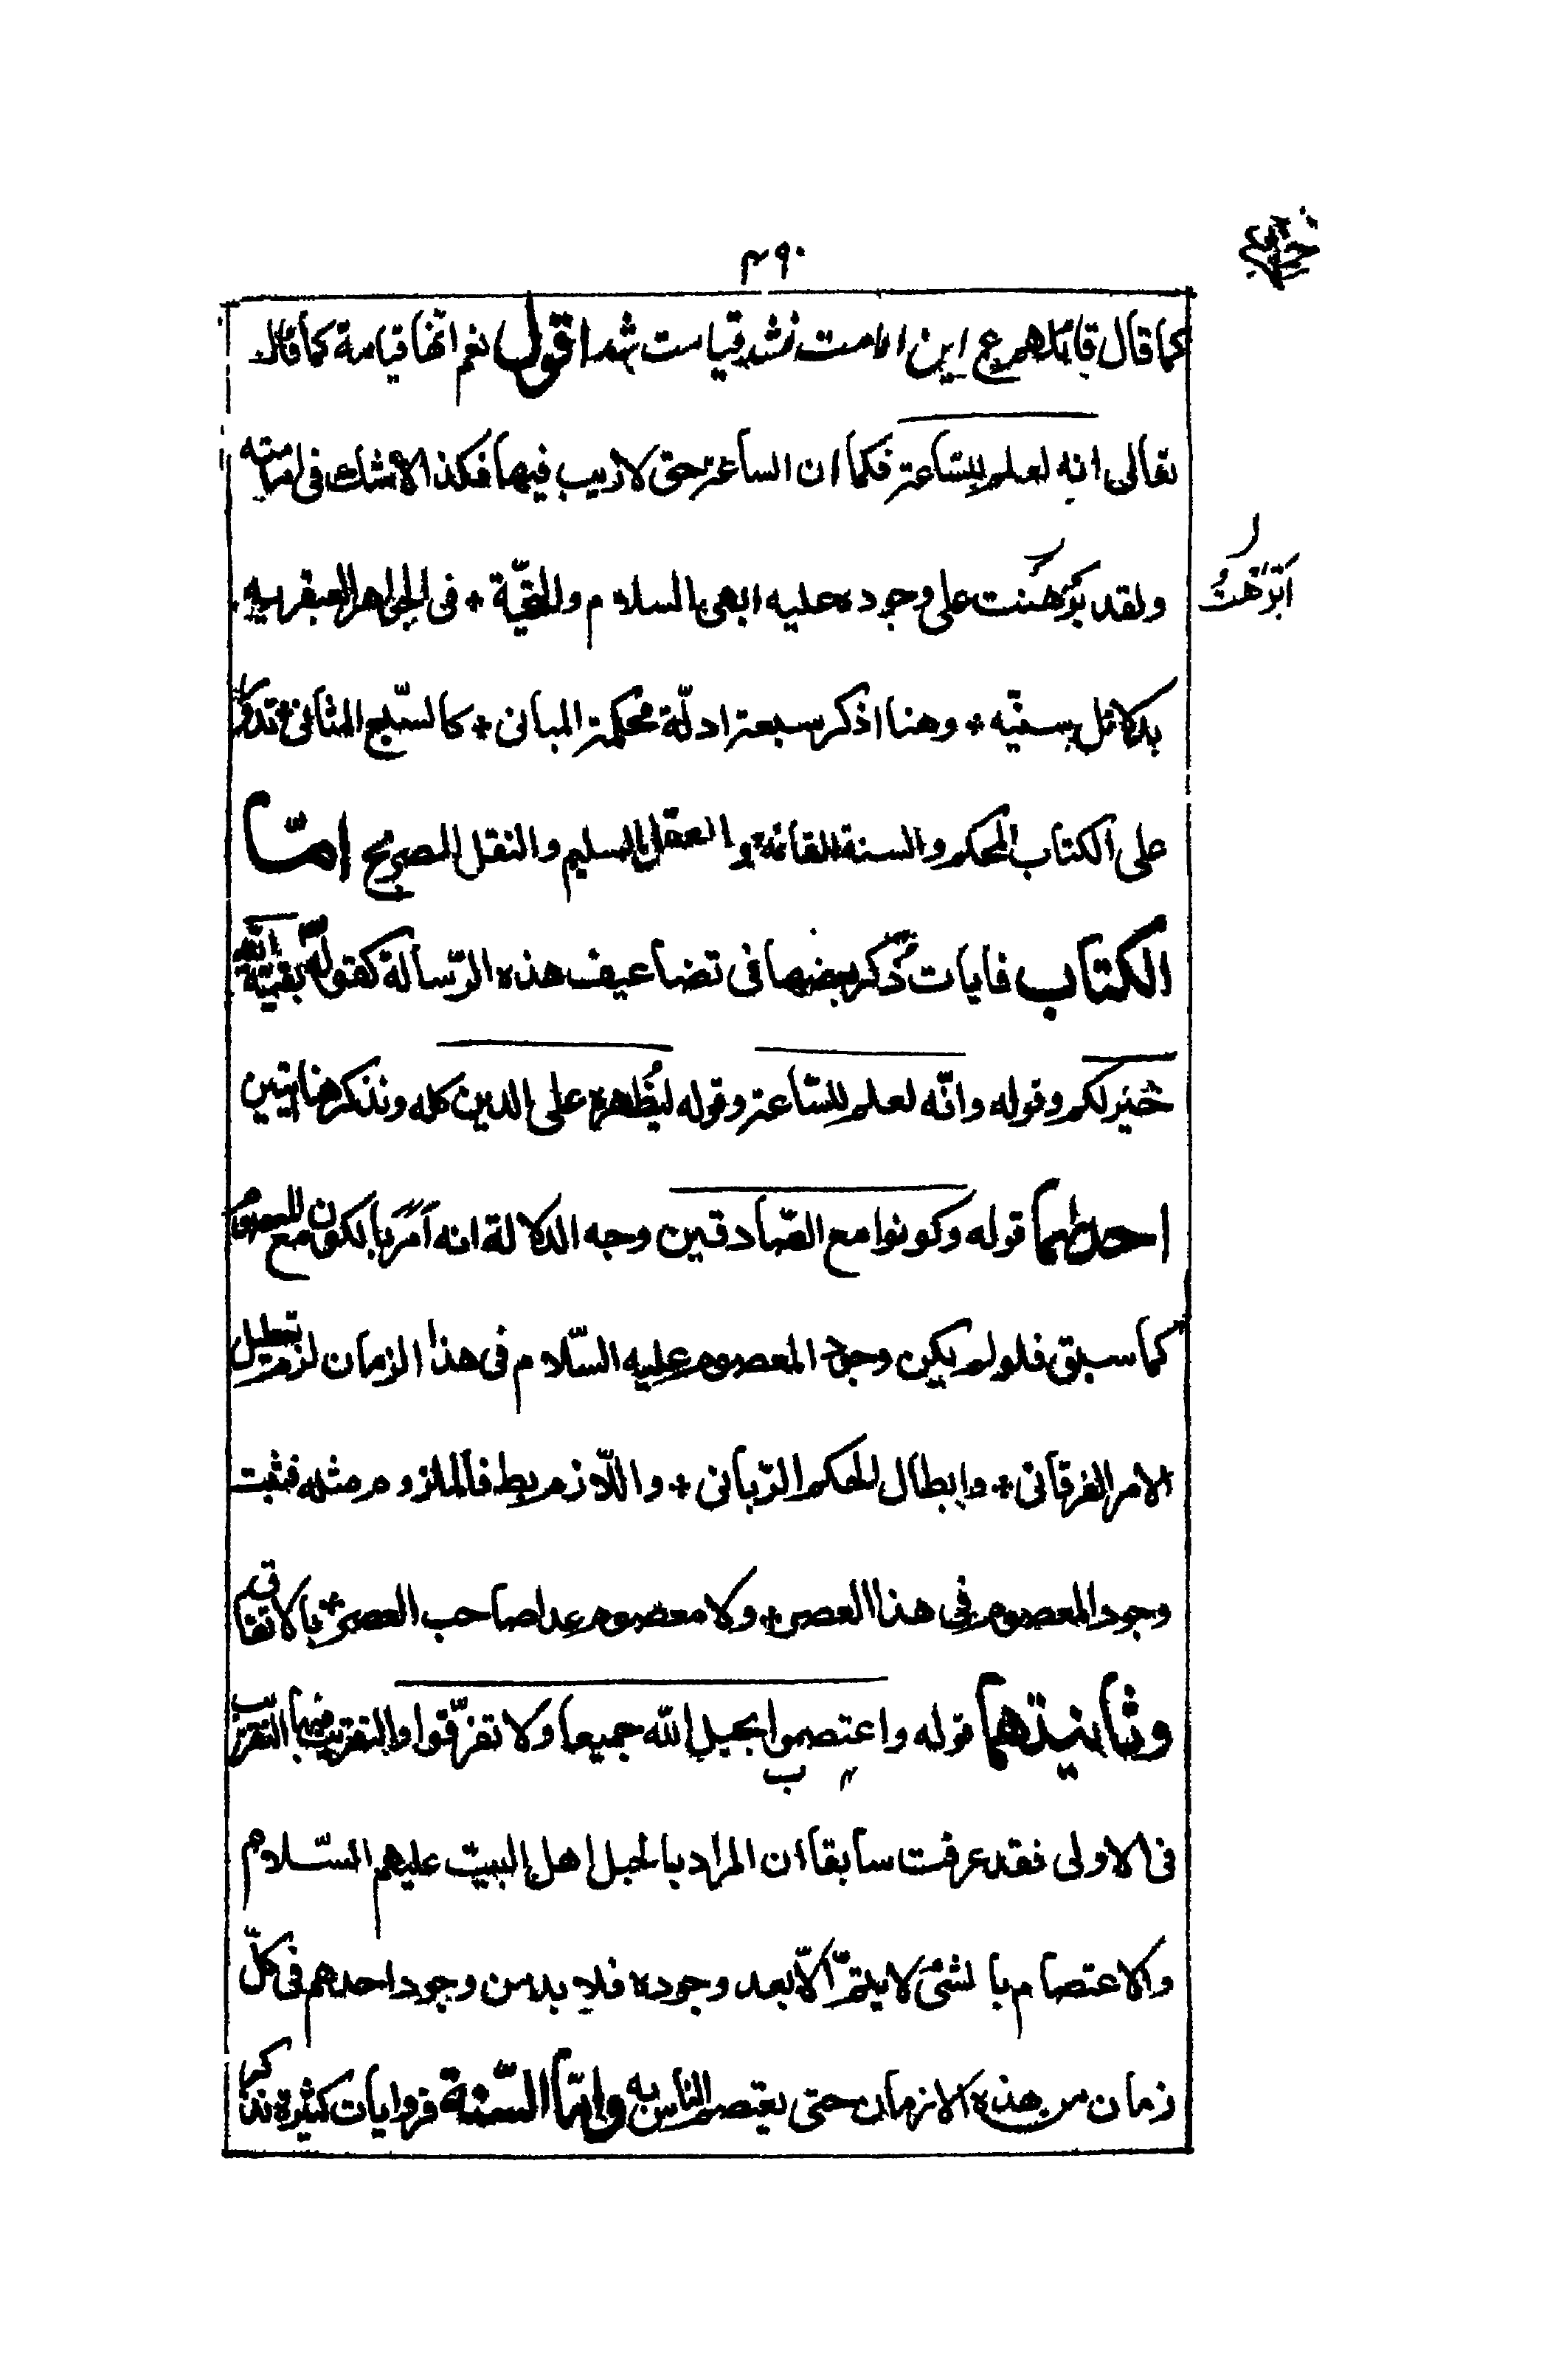 ٤٩٠
كما قال قائلهم ع اين امامت نشد قيامت شد اقول نعم انّها قيامة كما قال
تعالى انه لعلم للسّاعة فكما ان الساعة حق لا ريب فيها فكذا لا شك فى امامته
ولقد برهنت على وجوده عليه ابهى السلام والتحيّة + فى الجواهر العبقرية
ابرهنت
بدلائل سنيّه + وهنا اذكر سبعة ادلّة محكمة المبانى + كالسّبع المثانى + تدور
على الكتاب المحكم والسنة القائمة والعقل السليم والنقل الصريح امّا
الكتاب فايات ذُكر بعضها فى تضاعيف هذه الرّسالة كقوله بقيّة الله
خير لكم وقوله وانّه لعلم للسّاعة وقوله ليُظهره على الدين كله ونذكر هنا ايتين
احدٰهما قوله وكونوا مع الصّادقين وجه الدلالة انه اَمَرَ بالكون مع المعصوم
كما سبق فلو لم يكن وجود المعصوم عليه السّلام فى هذا الزمان لزم تعطيل
الامر الفرقانى + وابطال الحكم الرّبانى + واللّازم بط فالملزوم مثله فثبت
وجود المعصوم فى هذا العصر + ولا معصوم عدا صاحب العصر بالاتفاق
وثانيتهما قوله واعتصموا بحبل الله جميعا ولا تفرّقوا والتقريب فيها التقريب
فى الاولى فقد عرفت سابقا ان المراد بالحبل اهل البيت عليهم السّلام
والاعتصام بالشئ لا يتمّ الّا بعد وجوده فلا بد من وجود احدهم فى كلّ
زمان من هذه الازمان حتى يعتصم الناس به وامّا السّنة فروايات كثيرة نذكر